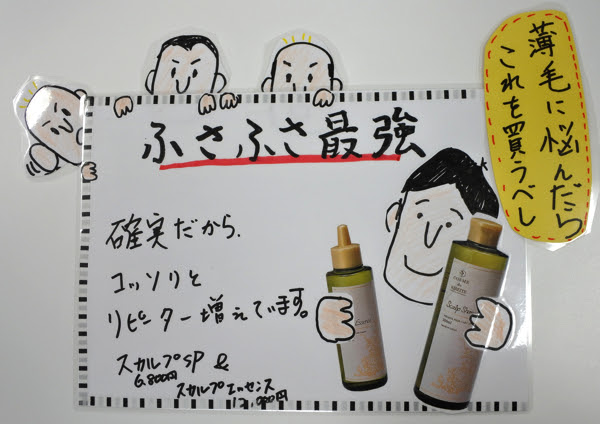 薄毛に悩んだら
これを買うべし
ふさふさ最強
確実だから、
コッソリと
リピーター増えています。
スカルプSP &
6,800円
スカルプエッセンス
Scalp